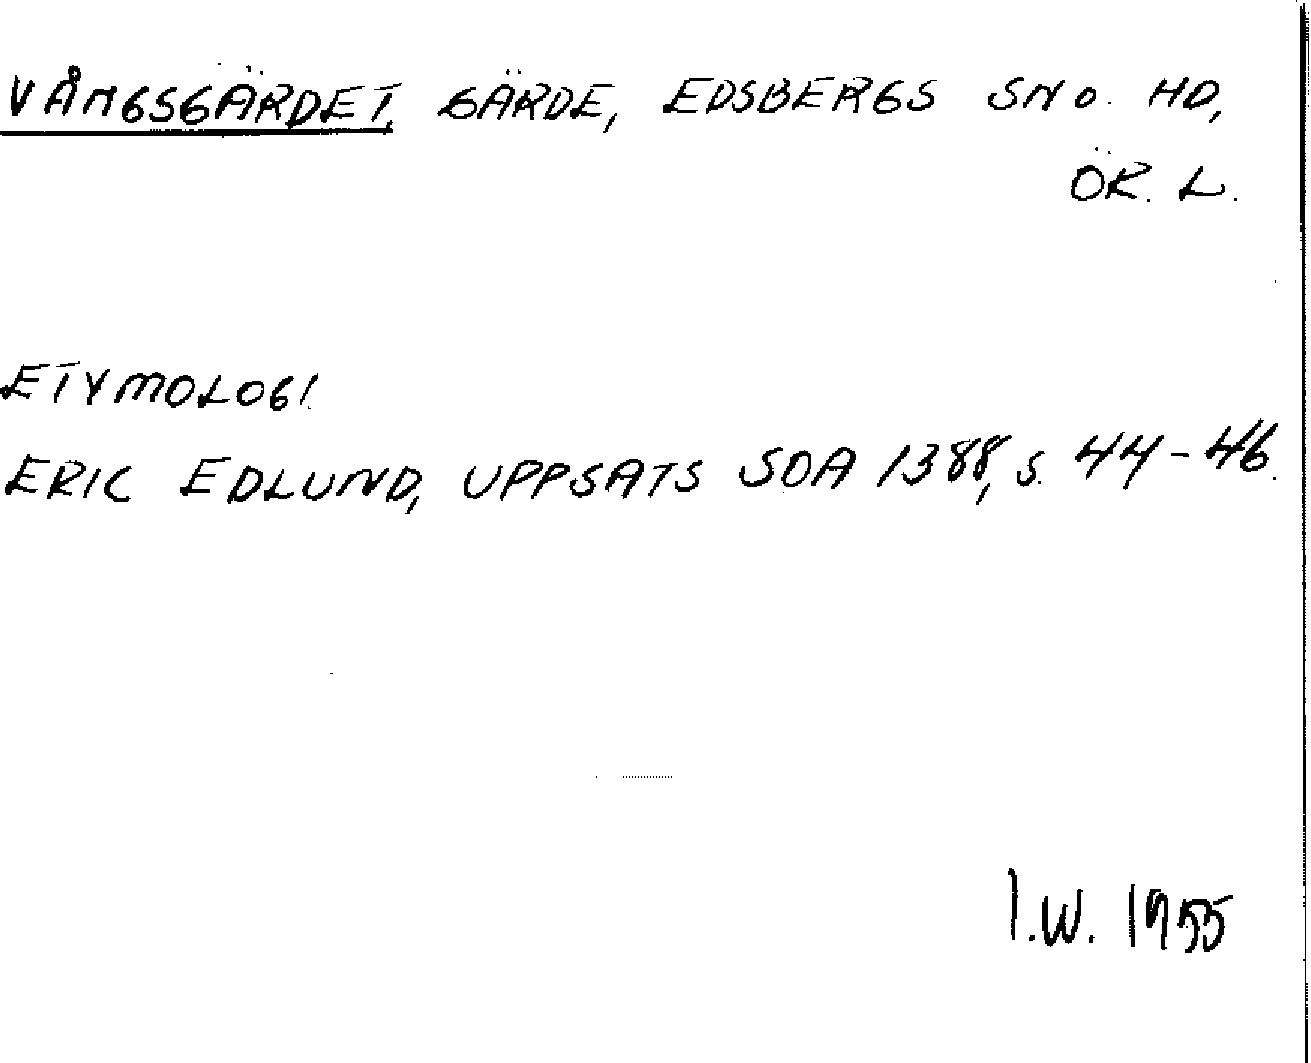 VÅNGSGÄRDET, GÄRDE, EDSBERGS SN O. HD,
ÖR. L.
ETYMOLOGI.
ERIC EDLUND, UPPSATS SOA 1388, S. 44-46.
I.W. 1955